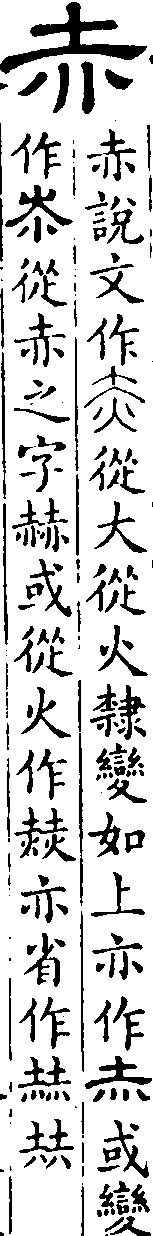 赤
赤說文作從大從火隸變如上亦作赤或變
作從赤之字赫或從火作亦省作